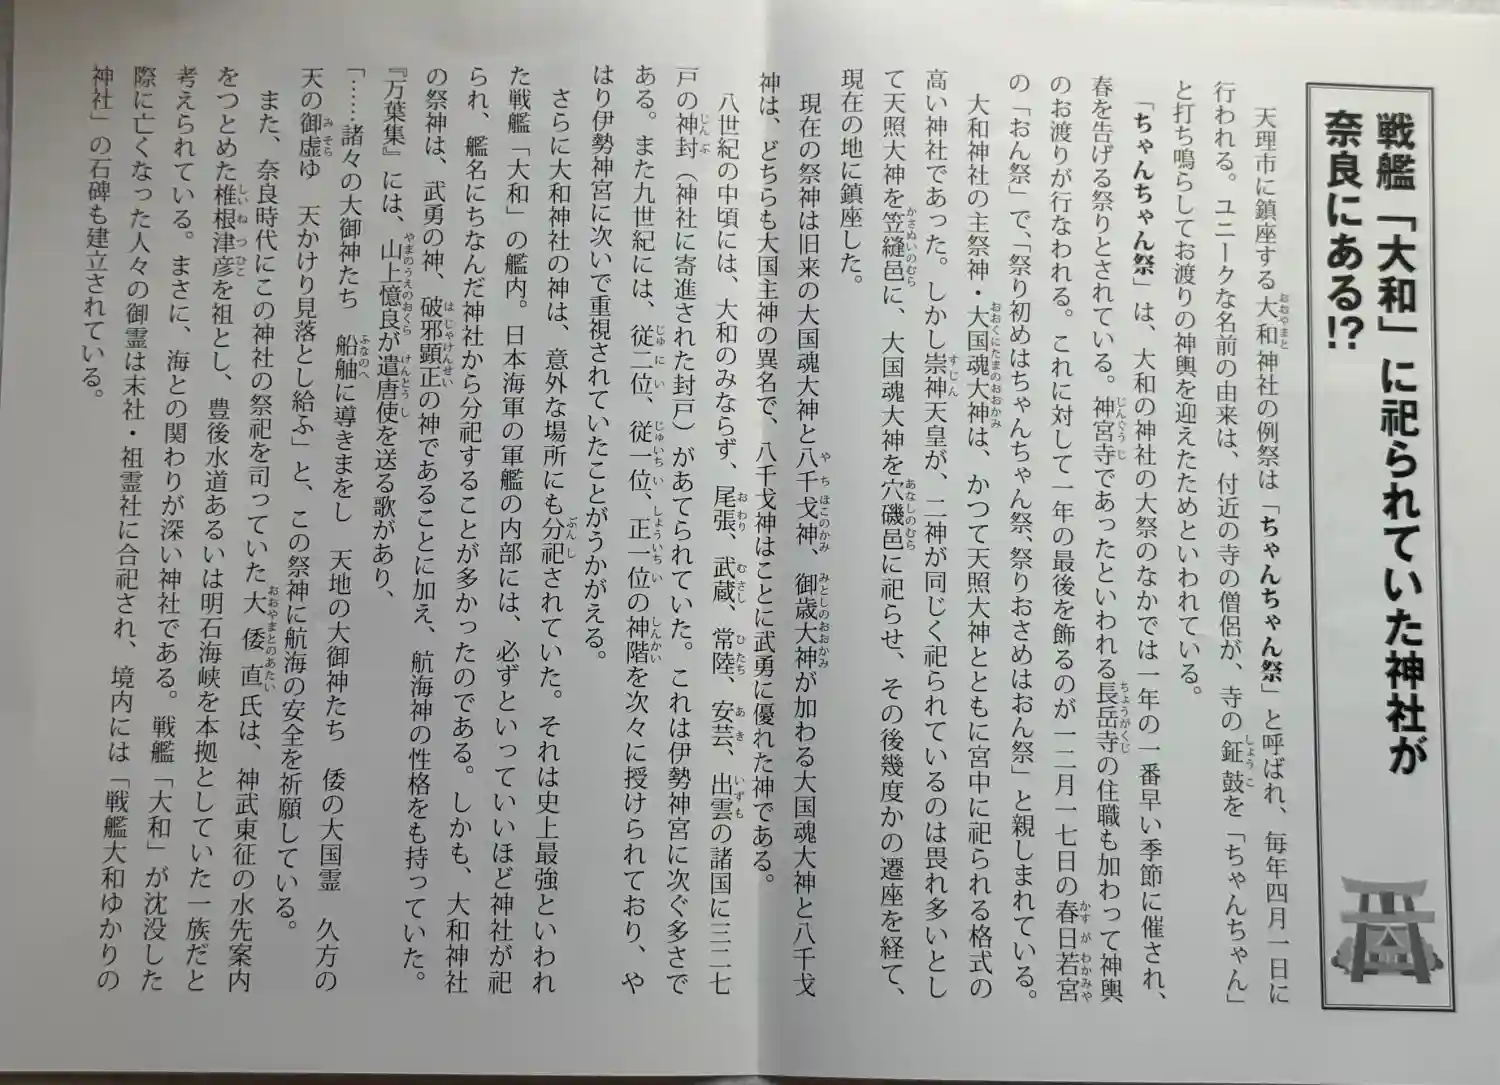 戦艦「大和」に祀られていた神社が
奈良にある!?
天理市に鎮座する大和神社の例祭は「ちゃんちゃん祭」と呼ばれ、毎年四月一日に
行われる。ユニークな名前の由来は、付近の寺の僧侶が、寺の鉦鼓を「ちゃんちゃん」
と打ち鳴らしてお渡りの神輿を迎えたためといわれている。
「ちゃんちゃん祭」は、大和の神社の大祭のなかでは一年の一番早い季節に催され、
春を告げる祭りとされている。神宮寺であったといわれる長岳寺の住職も加わって神輿
のお渡りが行なわれる。これに対して一年の最後を飾るのが一二月一七日の春日若宮
の「おん祭」で、「祭り初めはちゃんちゃん祭、祭りおさめはおん祭」と親しまれている。
大和神社の主祭神・大国魂大神は、かつて天照大神とともに宮中に祀られる格式の
高い神社であった。しかし崇神天皇が、二神が同じく祀られているのは畏れ多いとし
て天照大神を笠縫邑に、大国魂大神を穴磯邑に祀らせ、その後幾度かの遷座を経て、
現在の地に鎮座した。
現在の祭神は旧来の大国魂大神と八千戈神、御歳大神が加わる大国魂大神と八千戈
神は、どちらも大国主神の異名で、八千戈神はことに武勇に優れた神である。
八世紀の中頃には、大和のみならず、尾張、武蔵、常陸、安芸、出雲の諸国に三二七
戸の神封（神社に寄進された封戸）があてられていた。これは伊勢神宮に次ぐ多さで
ある。また九世紀には、従二位、従一位、正一位の神階を次々に授けられており、や
はり伊勢神宮に次いで重視されていたことがうかがえる。
さらに大和神社の神は、意外な場所にも分祀されていた。それは史上最強といわれ
た戦艦「大和」の艦内。日本海軍の軍艦の内部には、必ずといっていいほど神社が祀
られ、艦名にちなんだ神社から分祀することが多かったのである。しかも、大和神社
の祭神は、武勇の神、破邪顕正の神であることに加え、航海神の性格をも持っていた。
『万葉集』には、山上憶良が遣唐使を送る歌があり、
「……諸々の大御神たち　船舳に導きまをし　天地の大御神たち　倭の大国霊　久方の
天の御虚ゆ　天かけり見落とし給ふ」と、この祭神に航海の安全を祈願している。
また、奈良時代にこの神社の祭祀を司っていた大倭直氏は、神武東征の水先案内
をつとめた椎根津彦を祖とし、豊後水道あるいは明石海峡を本拠としていた一族だと
考えられている。まさに、海との関わりが深い神社である。戦艦「大和」が沈没した
際に亡くなった人々の御霊は末社・祖霊社に合祀され、境内には「戦艦大和ゆかりの
神社」の石碑も建立されている。